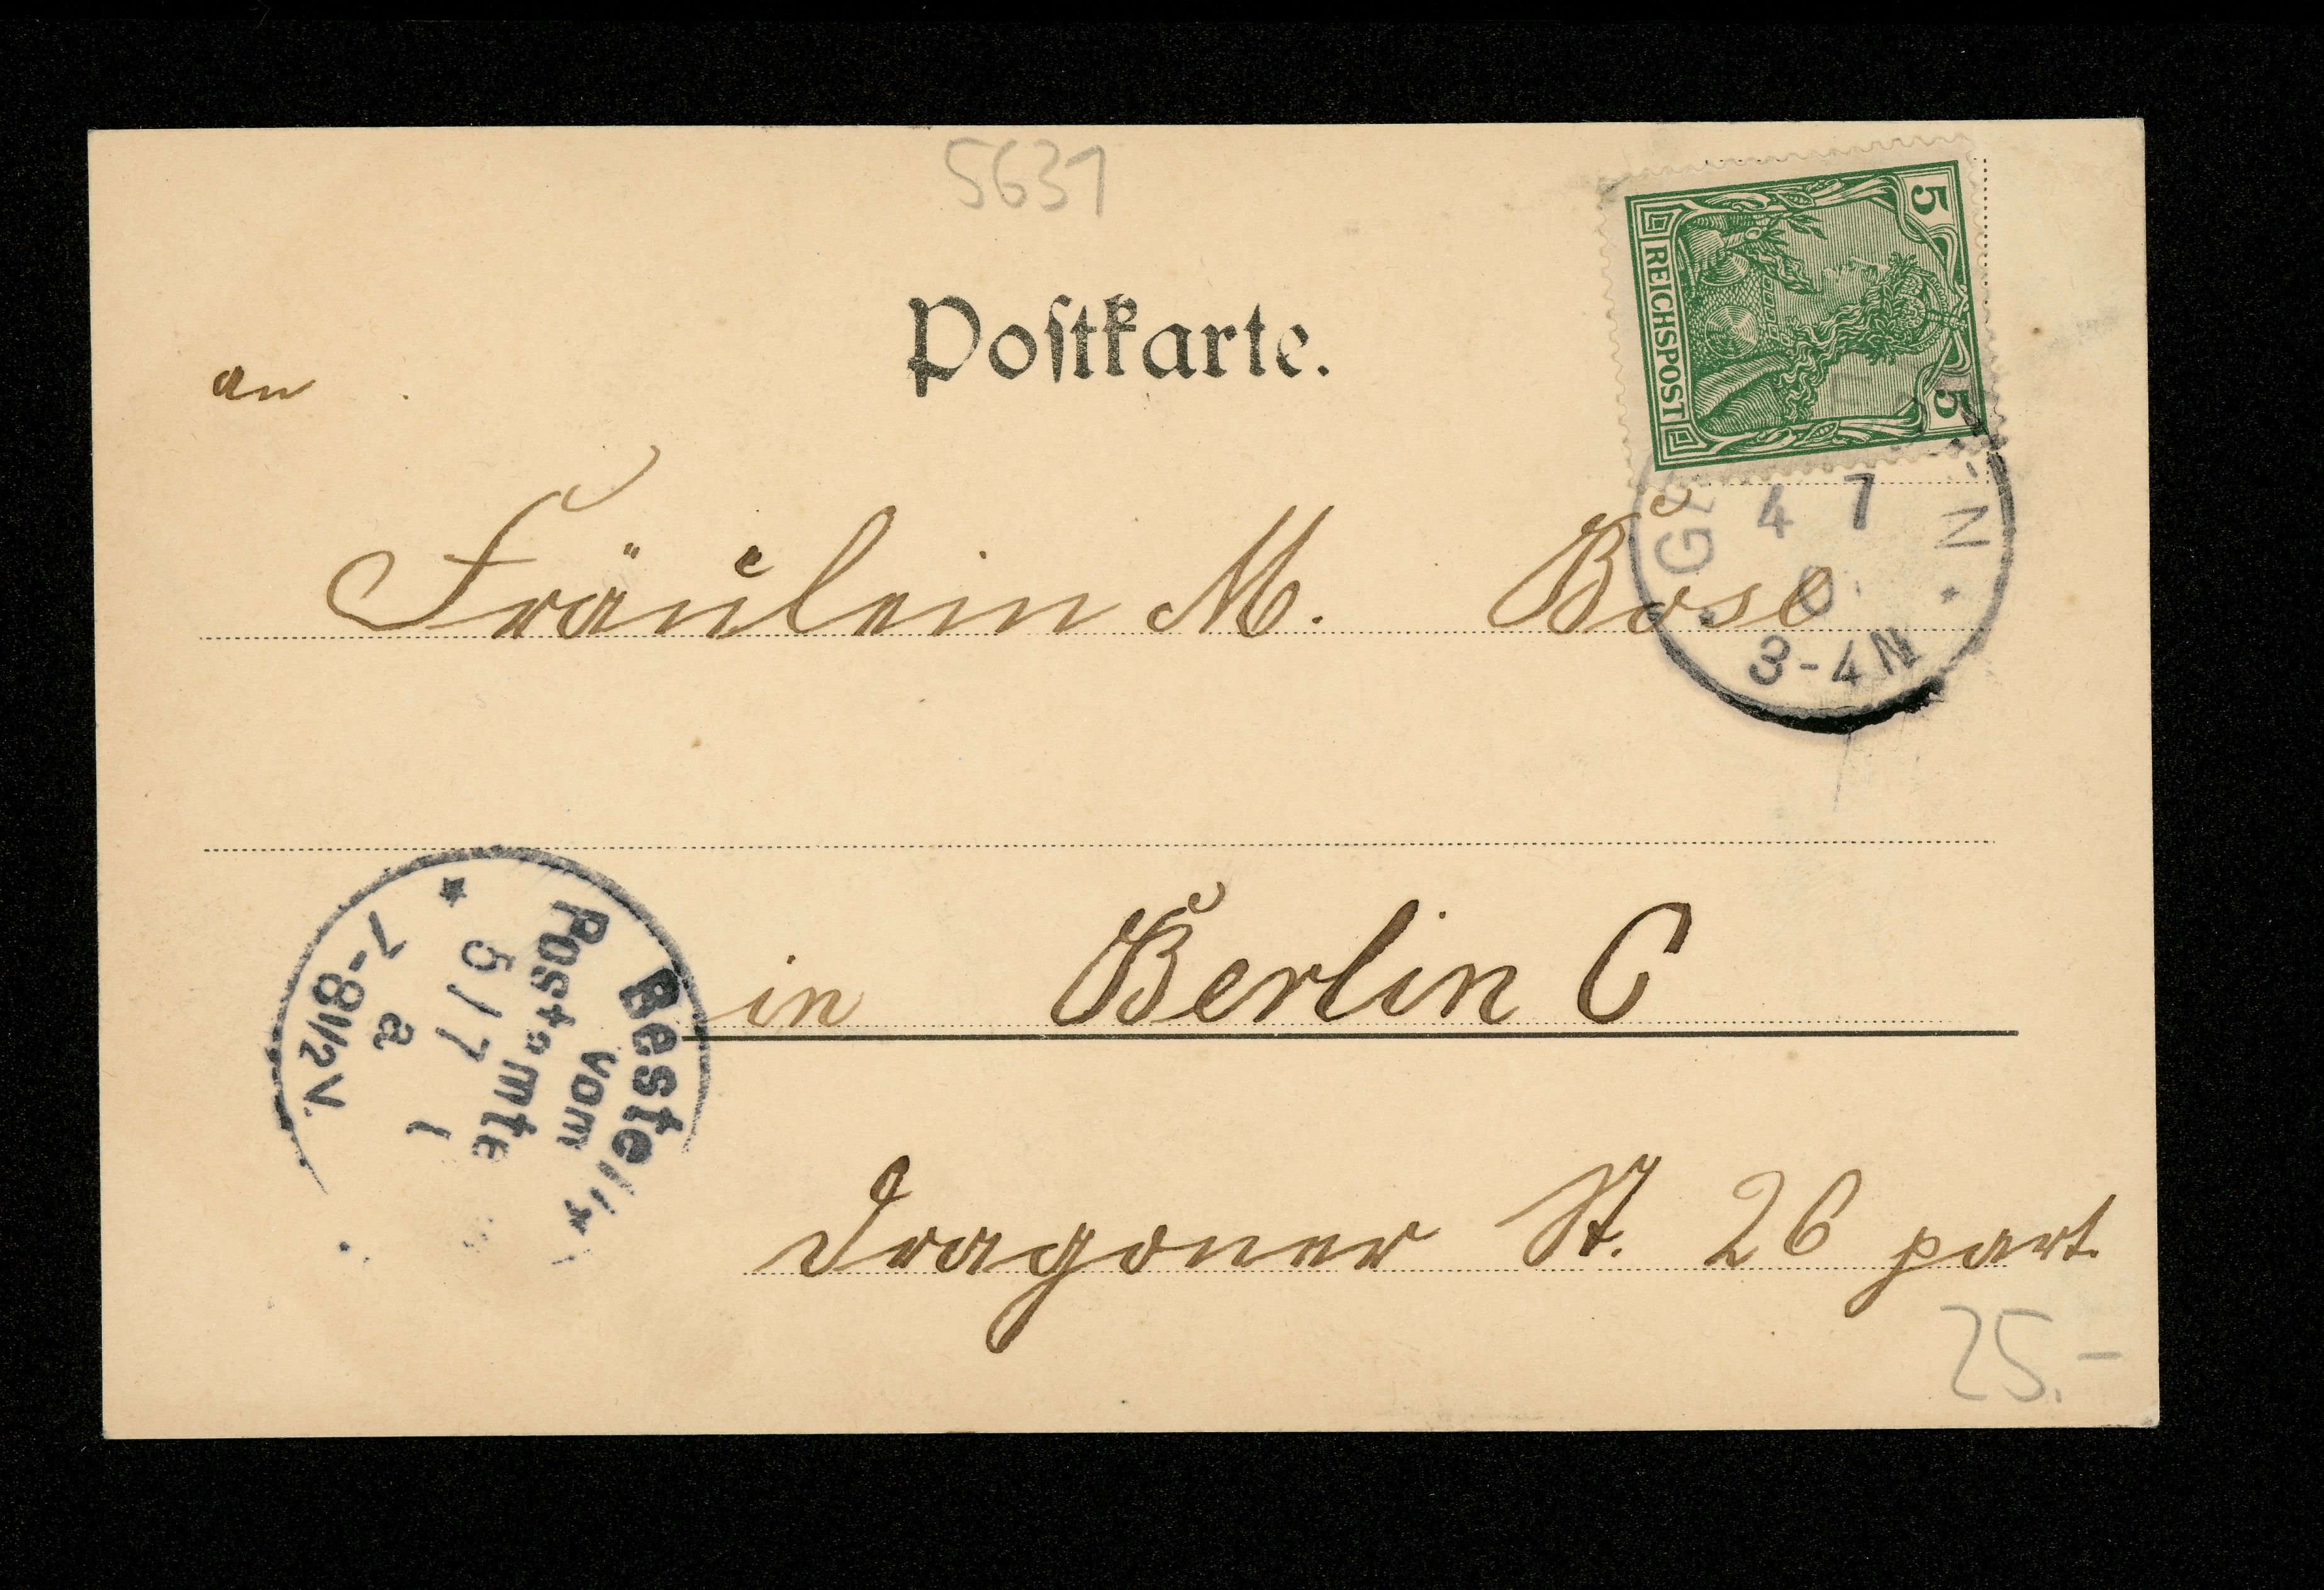 5631
Postkarte.
5 5
REICHSPOST
an
4 7
3-4N
N
Fräulein M. Bose
Bestellt
vom
Postamte
5/7
7-8½V.
in Berlin C
Dragoner St. 26 part.
25.-